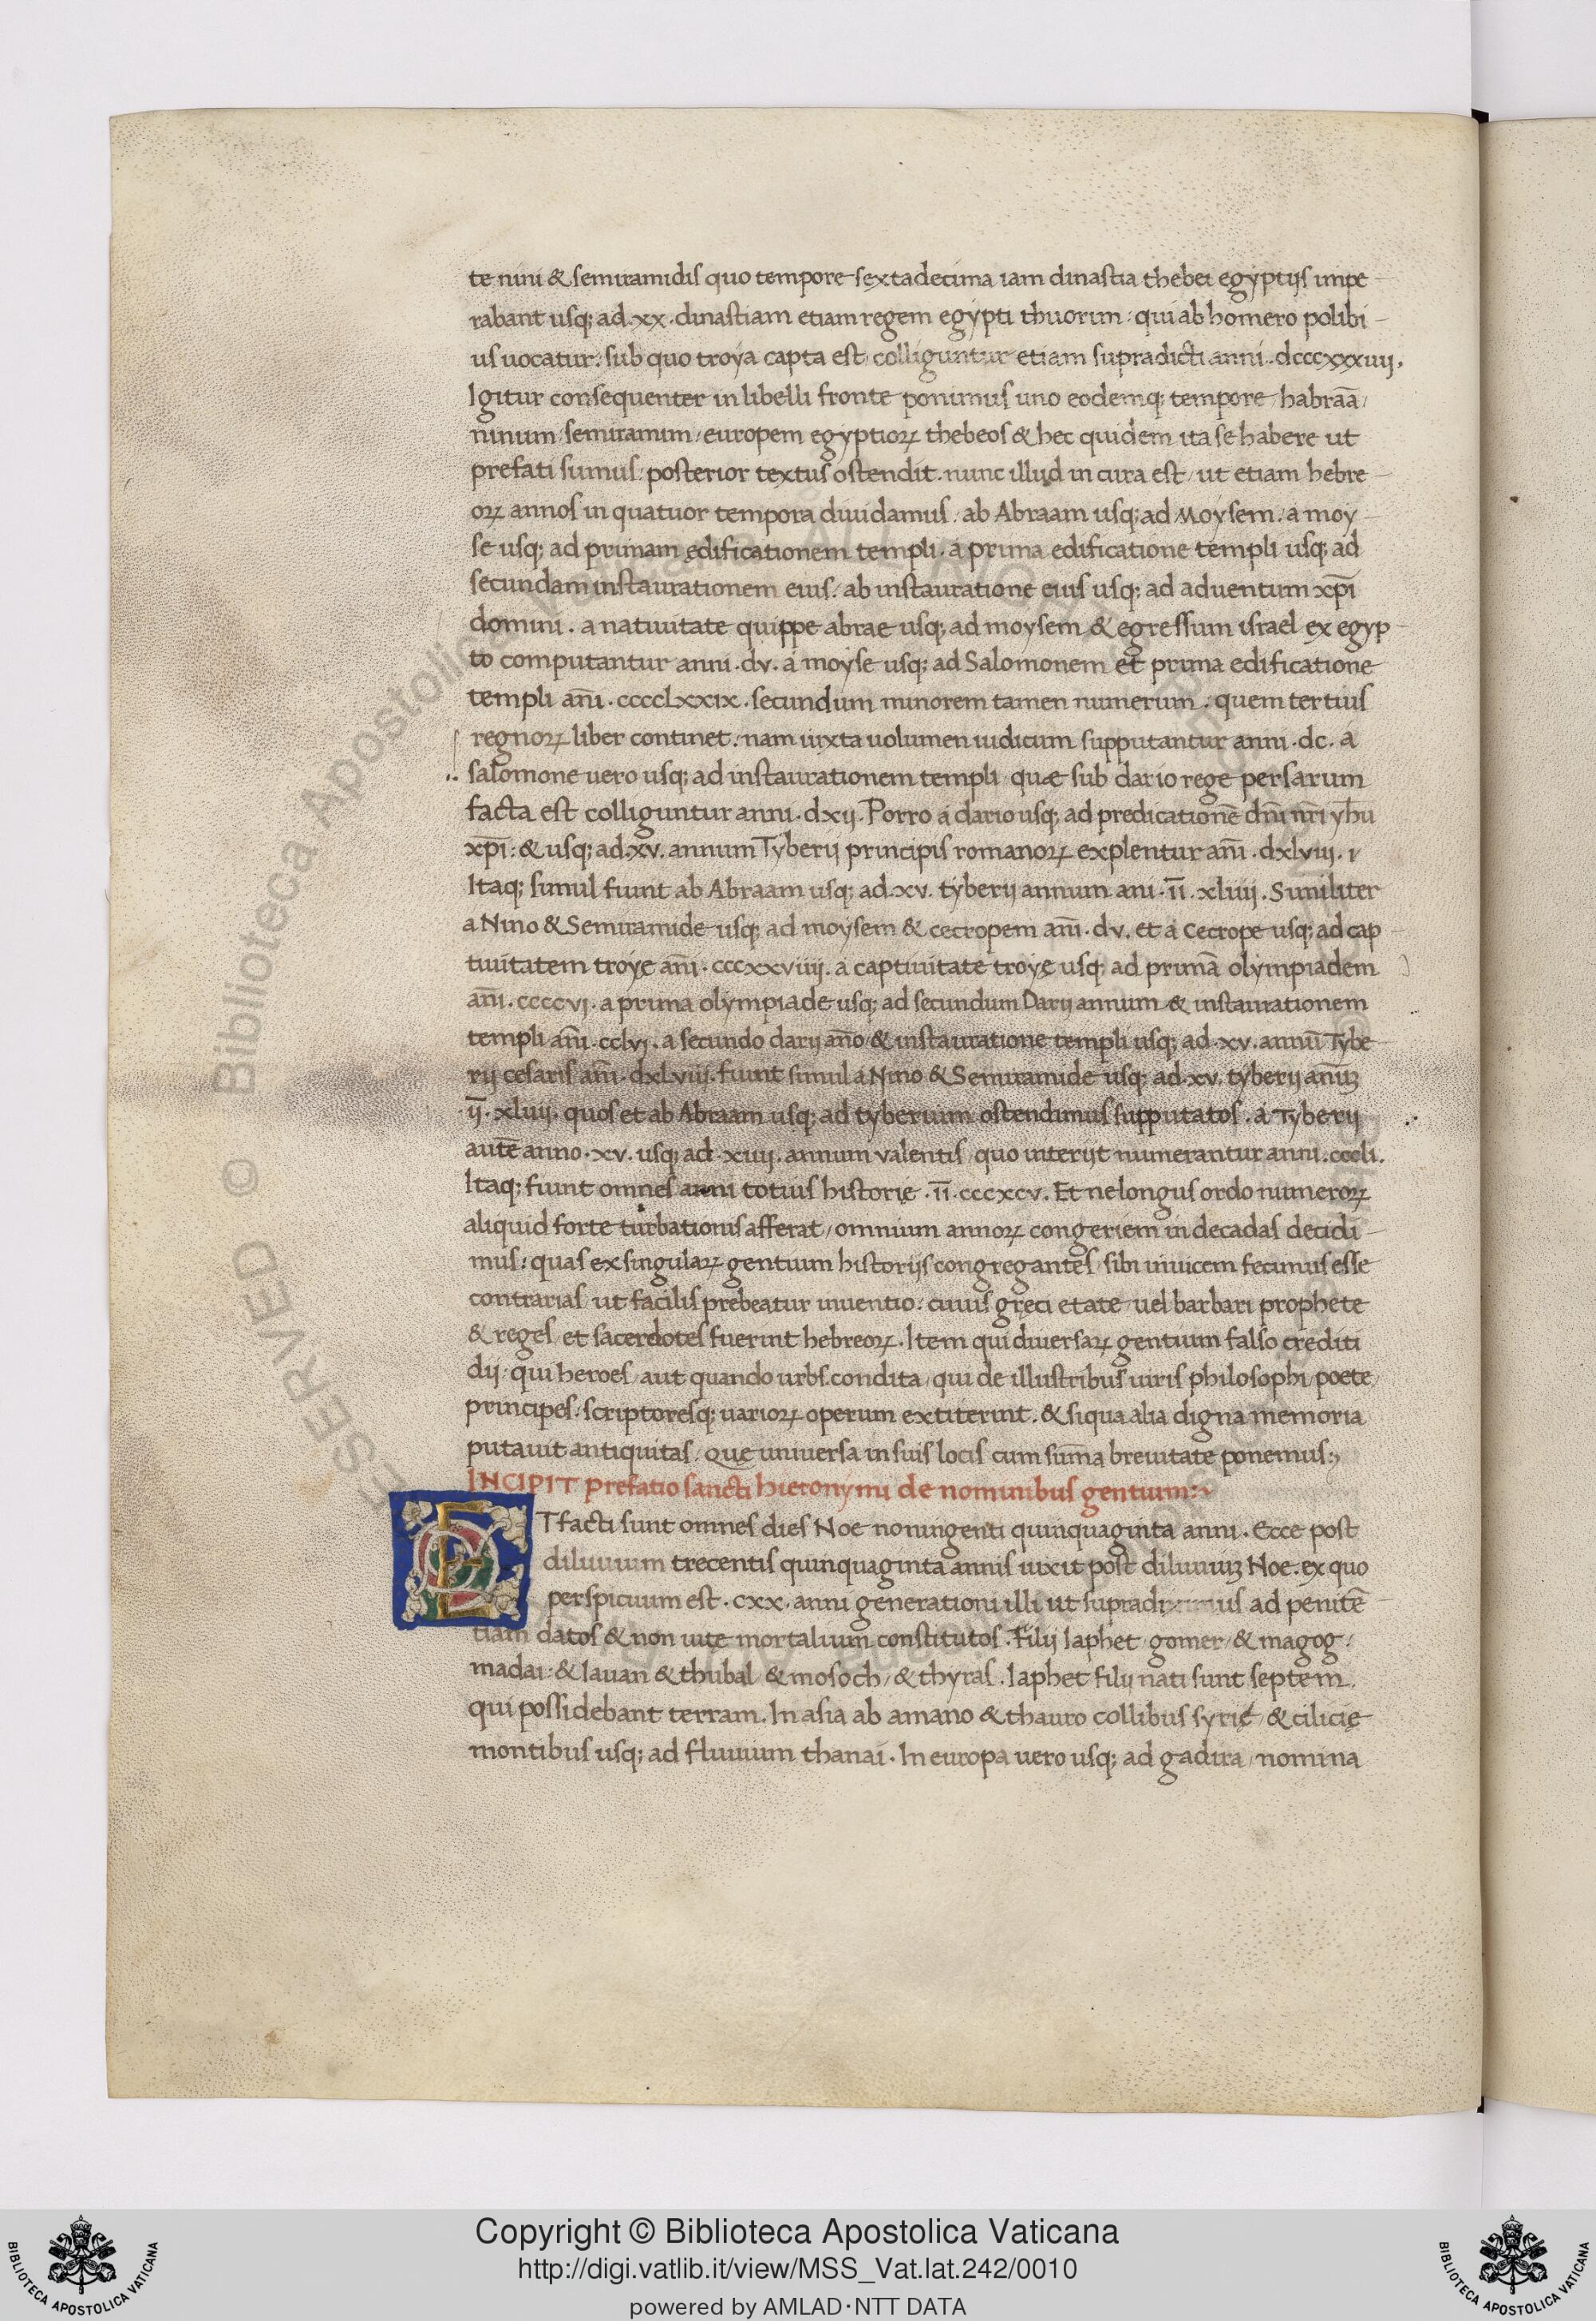 te nini & semiramidis quo tempore sextadecima iam dinastia thebei egyptijs impe
rabant usq; ad .xx. dinastiam etiam regem egypti thuorim: qui ab homero polibi
us uocatur: sub quo troya capta est colliguntur etiam supradicti anni .dcccxxxiiij.
Igitur consequenter in libelli fronte ponimus uno eodemq; tempore habraā/
ninum/ semiramim/ europem egyptioꝝ thebeos & hec quidem ita se habere ut
prefati sumus: posterior textus ostendit. nunc illud in cura est/ ut etiam hebre
oꝝ annos in quatuor tempora diuidamus/ ab Abraam usq; ad Moysem/ a moy
se usq; ad primam ędificationem templi. a prima edificatione templi usq; ad
secundam instaurationem eius: ab instauratione eius usq; ad aduentum xp̄i
domini. a natiuitate quippe abrae usq; ad moysem & egressum israel ex egyp
to computantur anni .dv. a moyse usq; ad Salomonem et prima edificatione
templi an̄i .ccccLxxix. secundum minorem tamen numerum/ quem tertius
regnoꝝ liber continet. nam iuxta uolumen iudicum supputantur anni .dc. a
salomone uero usq; ad instaurationem templi/ quæ sub dario rege persarum
facta est colliguntur anni .dxij. Porro a dario usq; ad predicationē dn̄i nr̄i yhū
xp̄i: & usq; ad .xv. annum Tyberij principis romanoꝝ explentur an̄i .dxlviij.
Itaq; simul fiunt ab Abraam usq; ad .xv. tyberij annum ani .īī. xliiij. Similiter
a Nino & Semiramide usq; ad moysem & cecropem an̄i .dv. et a Cecrope usq; ad cap
tiuitatem troyę an̄i .cccxxviiij. a captiuitate troyę usq; ad primā olympiadem
an̄i .ccccvj. a prima olympiade usq; ad secundum Darij annum & instaurationem
templi an̄i .cclvj. a secundo darij an̄o & instauratione templi usq; ad .xv. annū Tybe
rij cesaris an̄i .dxlviij. fiunt simul a Nino & Semiramide usq; ad .xv. tyberij anūꝫ
īj. xliiij. quos et ab Abraam usq; ad tyberium ostendimus supputatos. a Tyberij
autē anno .xv. usq; ad .xiiij. annum valentis/ quo interijt numerantur anni .cccli.
Itaq; fiunt omnes anni totius historię .īī. cccxcv. Et ne longus ordo numeroꝝ
aliquid forte turbationis afferat/ omnium annoꝝ congeriem in decadas decidi
mus: quas ex singulaꝝ gentium historijs congregantes/ sibi inuicem fecimus esse
contrarias/ ut facilis prebeatur inuentio: cuius gręci etate uel barbari prophete
& reges et sacerdotes fuerint hebreoꝝ. Item qui diuersaꝝ gentium falso crediti
dij: qui heroes/ aut quando urbs condita/ qui de illustribus uiris philosophi/ poete/
principes: scriptoresq; uarioꝝ operum extiterint. & siqua alia digna memoria
putauit antiquitas/ que uniuersa in suis locis cum sum̄a breuitate ponemus:
INCIPIT prefatio sancti hieronymi de nominibus gentium:
ET facti sunt omnes dies Noe noningenti quinquaginta anni. Ecce post
diluuium trecentis quinquaginta annis uixit post diluuiuꝫ Noe. ex quo
perspicuum est .cxx. anni generationi illi ut supradiximus ad penitē
tiam datos & non uite mortalium constitutos. Filij Iaphet gomer/ & magog/
madai: & Iauan & thubal/ & mosoch/ & thyras. Iaphet filij nati sunt septem
qui possidebant terram. In asia ab amano & thauro collibus syrię/ & cilicię
montibus usq; ad fluuium thanai. In europa uero usq; ad gadira/ nomina
Biblioteca Apostolica Vaticana
Copyright © Biblioteca Apostolica Vaticana
http://digi.vatlib.it/view/MSS_Vat.lat.242/0010
powered by AMLAD·NTT DATA
BIBLIOTECA APOSTOLICA VATICANA
BIBLIOTECA APOSTOLICA VATICANA